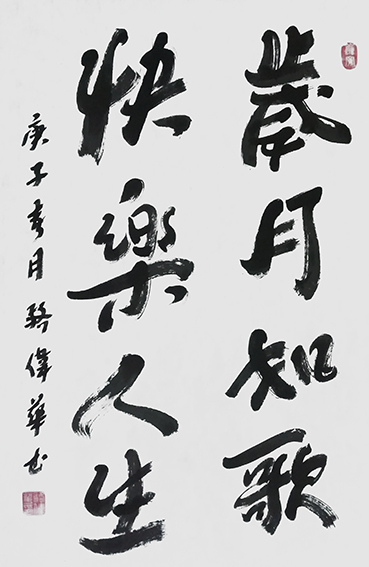 歲月如歌
快樂人生
庚子春月駱偉華书